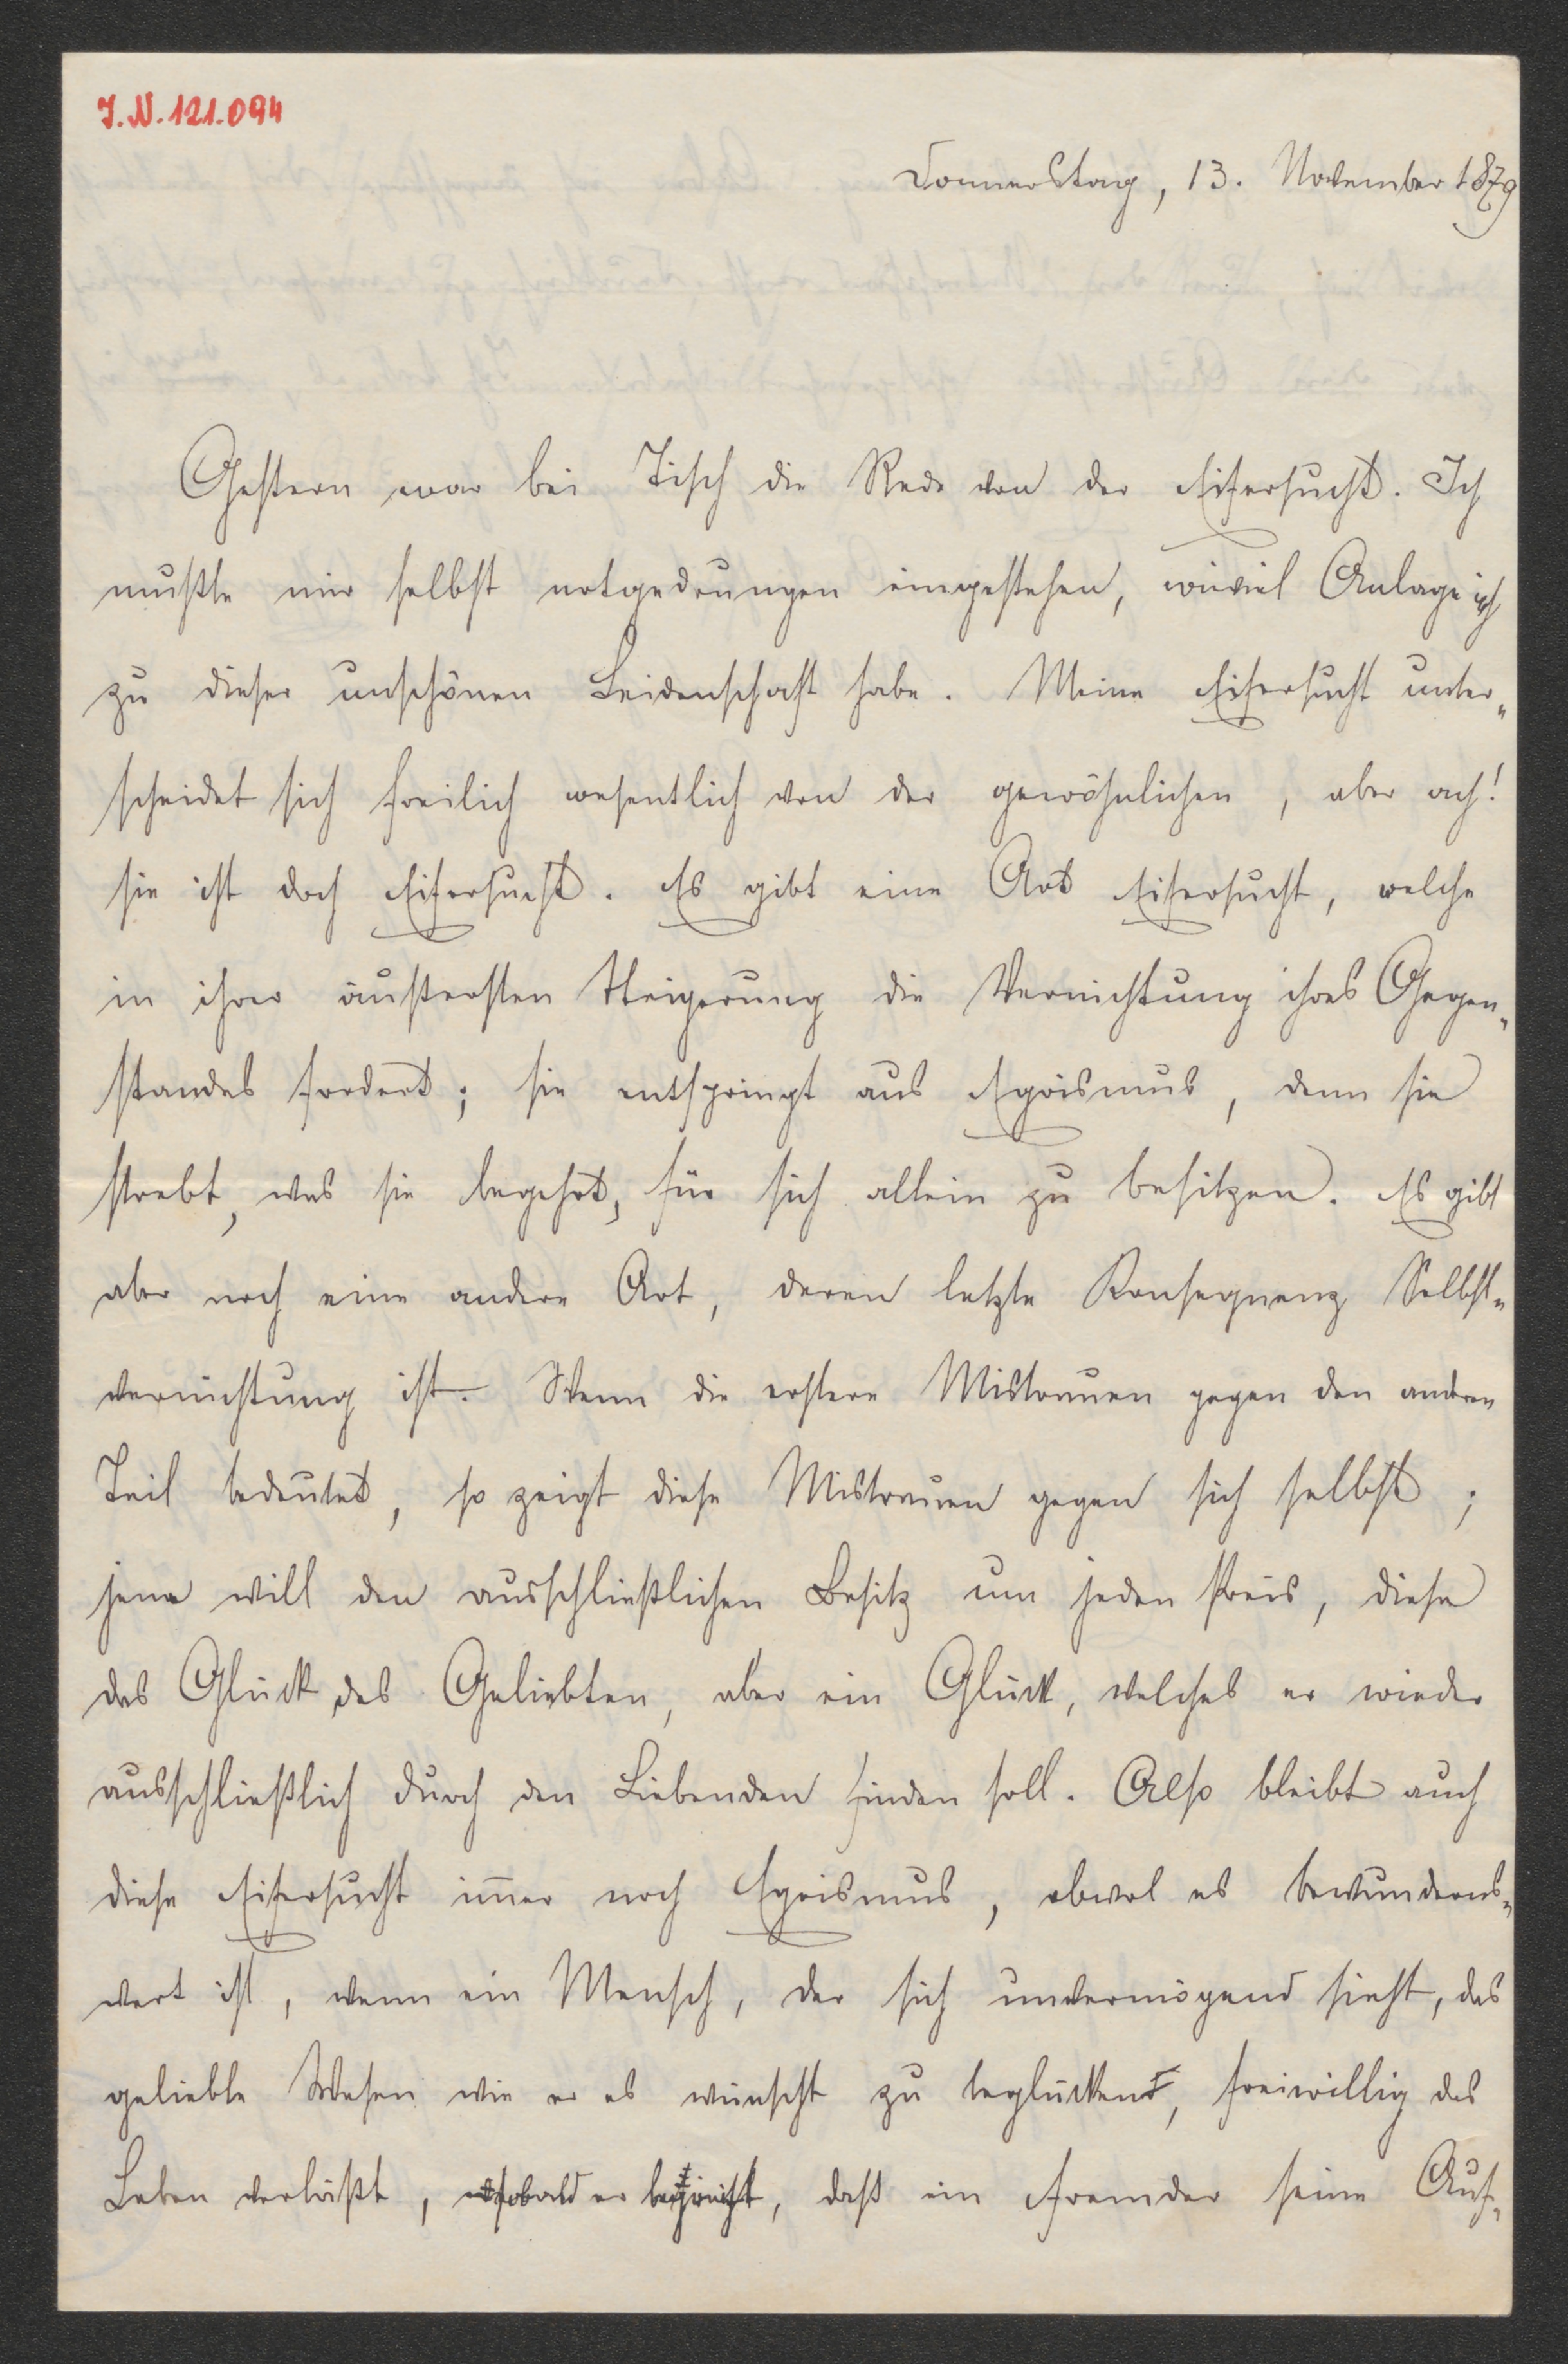 J.N. 121.094
Donnerstag, 13. November 1879
Gestern war bei Tisch die Rede von der Eifersucht. Ich
mußte mir selbst notgedrungen eingestehen, wieviel Anlage ich
zu dieser unschönen Leidenschaft habe. Meine Eifersucht unter„
scheidet sich freilich wesentlich von der gewöhnlichen, aber ach!
sie ist doch Eifersucht. Es gibt eine Art Eifersucht, welche
in ihrer äußersten Steigerung die Vernichtung ihres Gegen„
standes fordert; sie entspringt aus Egoismus, denn sie
strebt, was sie begehrt, für sich allein zu besitzen. Es gibt
aber noch eine andere Art, deren letzte Konsequenz Selbst„
vernichtung ist. Wenn die erstere Mistrauen gegen den anderen
Teil bedeutet, so zeigt diese Mistrauen gegen sich selbst;
jene will den ausschließlichen Besitz um jeden Preis, diese
das Glück des Geliebten, aber ein Glück, welches er wieder
ausschließlich durch den Liebenden finden soll. Also bleibt auch
diese Eifersucht im̅er noch Egoismus, obwol es bewunderns„
wert ist, wenn ein Mensch, der sich unvermögend sieht, das
geliebte Wesen wie er es wünscht zu beglücken, freiwillig das
Leben verläßt, sobald er, daß ein Fremder seine Auf„